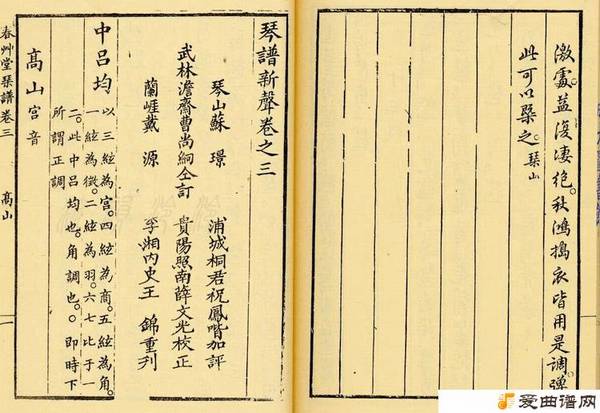 激處。蓋淒絕。秋鴻搗衣皆用是調彈
此可以槩之。琴山
琴譜新聲卷之三
琴山蘇 璟 浦城桐君祝鳳喈加評
武林澹齋曹尚絅仝訂 貴陽照南薛文光校正
蘭崖戴 源 湘內史王 錦重刋
中呂均
以三絃為宮。四絃為商。五絃為角。
一絃為徵。二絃為羽。六七比于一
二。此中呂均也。角調也。○即時下
所謂正調
髙山宮音
春艸堂琴譜卷三 髙山 一
爱曲谱网